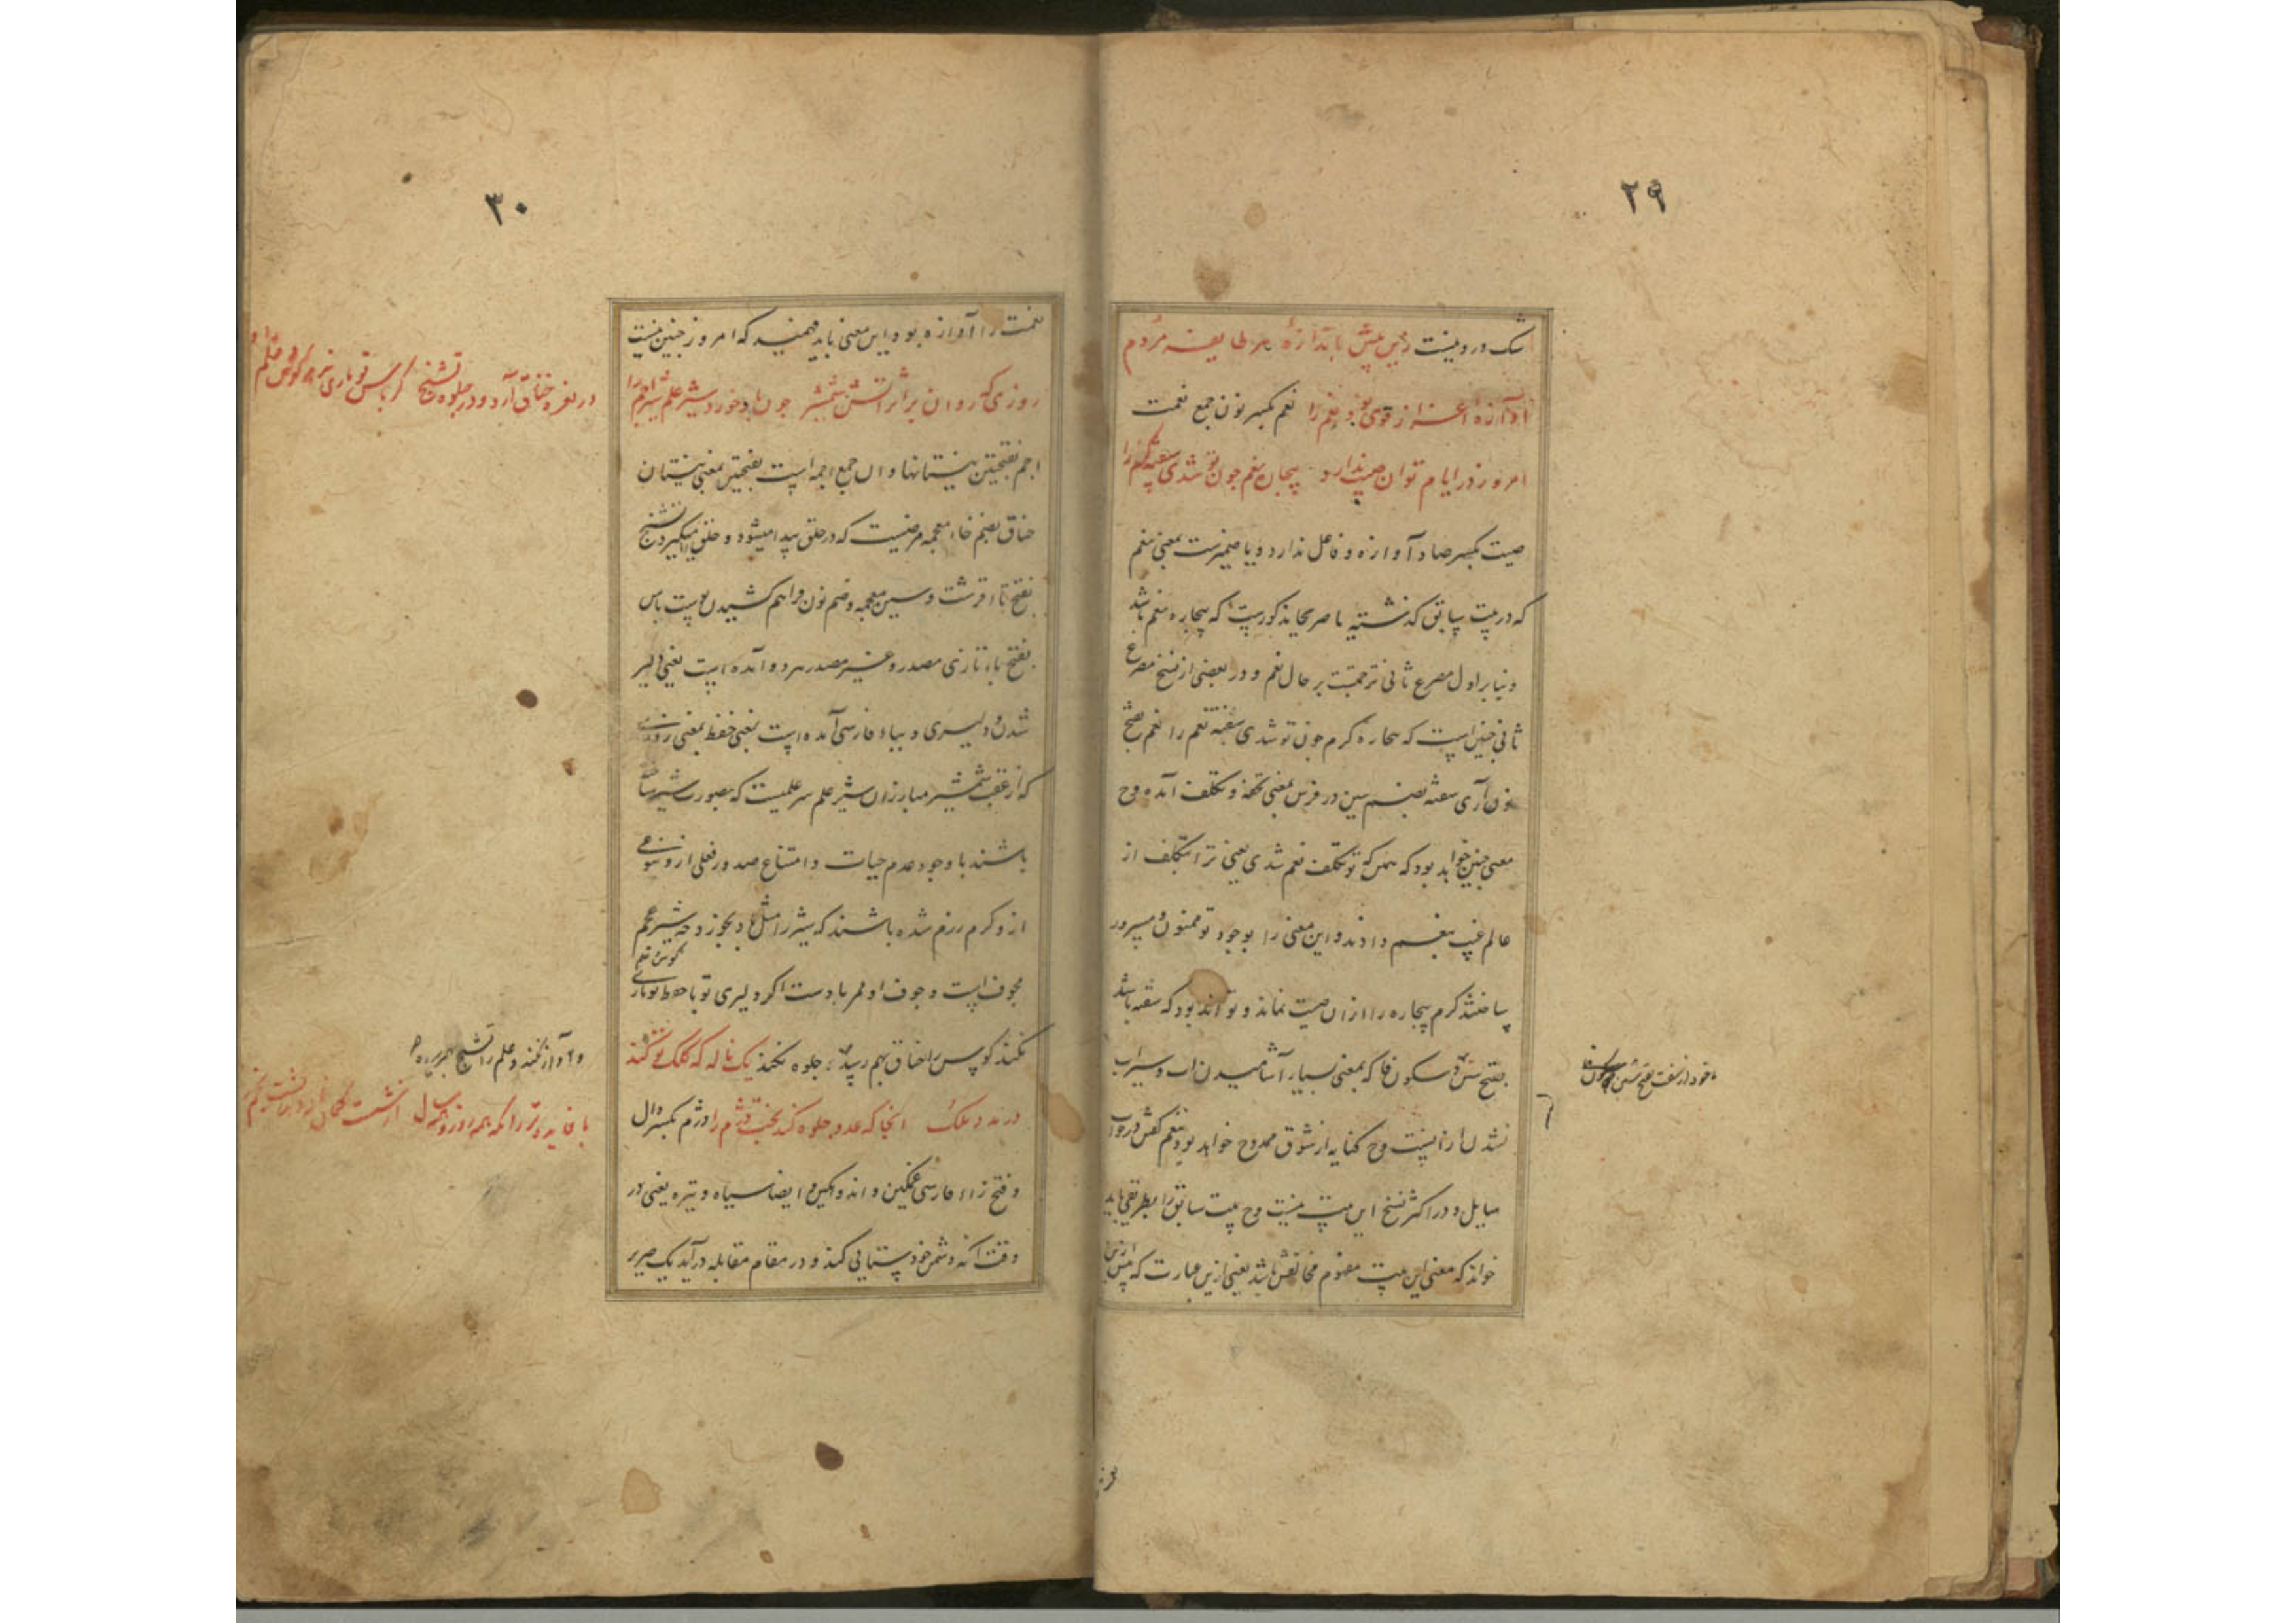 ۲۹
شک درو نیست زین پیش باندازهٔ هر طایفه مردم
آوازهٔ اعزاز قوی بود نعم را نعم بکسر نون جمع نعمت
امروز در ایام توان صیت ندارد بیچاره نعم چون تو شدی سفته کرم را
صیت بکسر صاد آوازه و فاعل ندارد ویا ضمیرست بمعنی نعم
که در بیت سابق گذشته یا صریحا مذکورست که بیچاره نعم باشد
و بنا بر اول مصرع ثانی ترحمست بر حال نعم و در بعضی از نسخ مصرع
ثانی چنین است که بیچاره کرم چون تو شدی سفته نعم را نعم بفتح
نون آری سفته بضم سین در فرس بمعنی تحفه و تکلف آمده وح
معنی چنین خواهد بود که بیمن که تو تکلف نعم شدی یعنی ترا بتکلف از
عالم غیب بنعم دادند و این معنی را بوجود تو ممنون و مسرور
ساختند کرم بیچاره را ازان صیت نماند و تواند بود که سفته باشد
بفتح شین و سکون فا که بمعنی بسیار آشامیدن آب و سیراب
نشدن ازانست وح کنایه از شوق ممدوح خواهد بود بنعم گفتن در جواب
سایل و در اکثر نسخ این بیت نیست وح بیت سابق را بطریقی باید
خواند که معنی این بیت مفهوم مخالفش باشد یعنی ازین عبارت که پیش ازین
ماخوذ از سفت بفتح شین و سکون فا
۳۰
نعمت را آوازه بود این معنی باید فهمید که امروز چنین نیست
روزی که روان بر اثر آتش شمشیر چون باد خورد شیر علم شیر اجم را
اجم بفتحتین نیستانها و آن جمع اجمه است بفتحتین بمعنی نیستان
خناق بضم خاء معجمه مرضیست که در حلق پیدا میشود و حلق را میگیرد تشنج
بفتح تاء قرشت و سین معجمه و ضم نون فراهم کشیدن پوست باس
بفتح باء تازی مصدر و غیر مصدر هر دو آمده است یعنی دلیر
شدن و دلیری و بباء فارسی آمده است یعنی حفظ بمعنی روزی
که از عقب شمشیر مبارزان شیر علم سر علمیست که بصورت شیر ساخته
باشند با وجود عدم حیات و امتناع صدور فعلی ازو بنوعی
ازو گرم رزم شده باشند که شیر را مثل باد بخورد چه شیر علم
مجوف است و جوف او ممر بادست اگر دلیری تو یا حفظ تو یاری
بکوس علم
نکند کوس را خناق بهم رسد و جلوه نکند یک ناله که کلک تو کند
در مدد ملک آنجا که عدو جلوه کند بخت دژم را دژم بکسر دال
و فتح زاء فارسی غمگین و اندوهگین و ایضا سیاه و تیره یعنی در
وقت آنکه دشمن خودستایی کند و در مقام مقابله درآید یک صریر
در نعره خناق آرد و در جلوه تشنج گر باس تو یاری نکند کوس و علم را
و آواز نکند و علم را تشنج بهم رسد